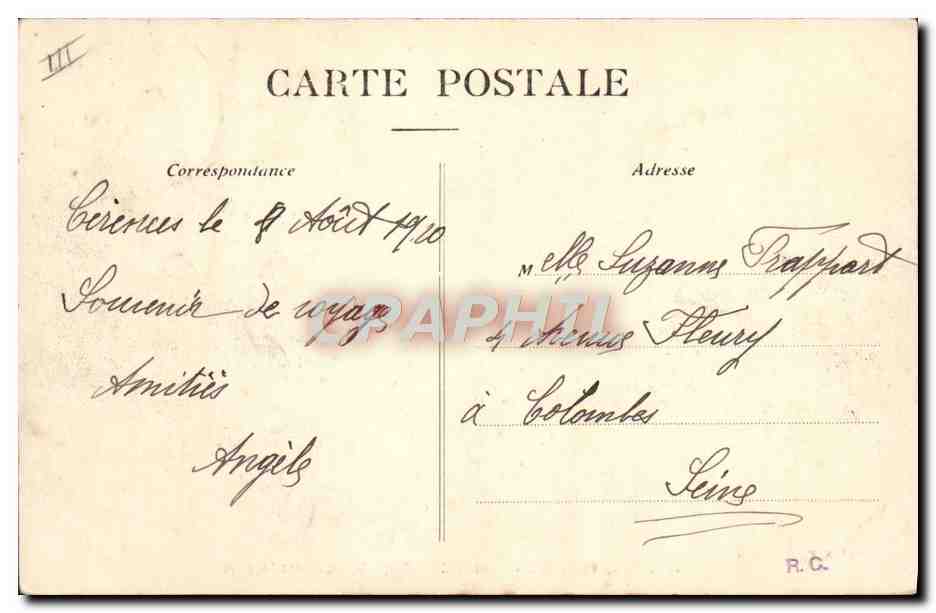 III
CARTE POSTALE
Correspondance
Adresse
Cérences le 8 Août 1910
Souvenir de voyage
Amitiés
Angèle
M elle Suzanne Frappart
4 Avenue Fleury
à Colombes
Seine
R.G.
CPAPHTI